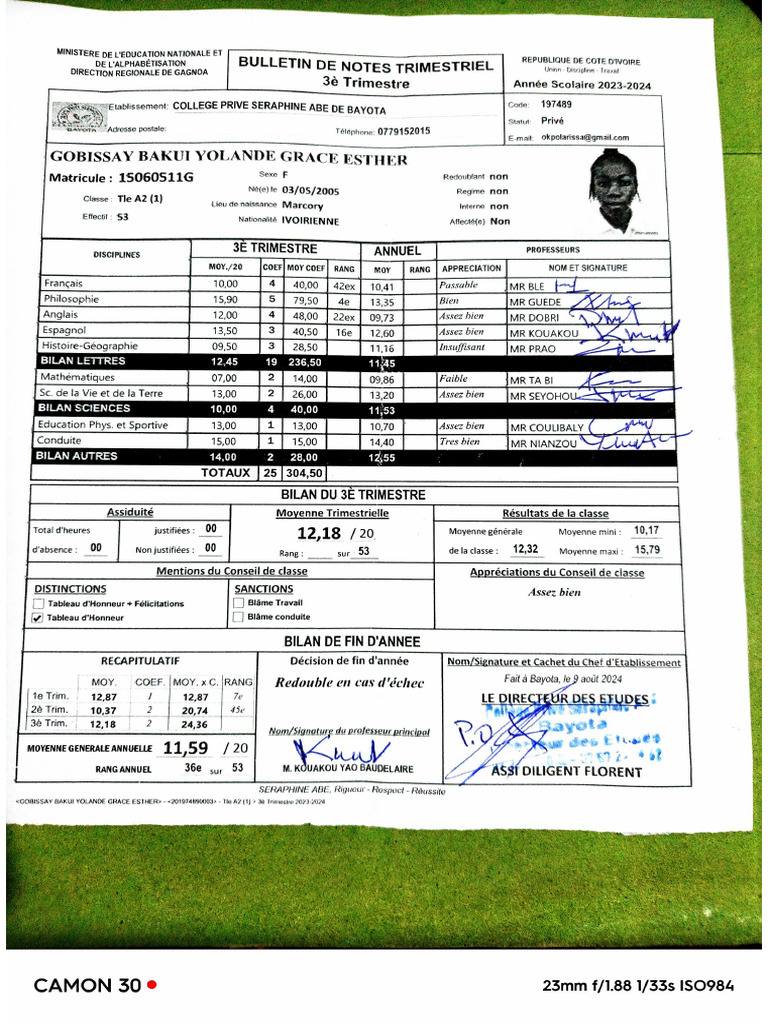 MINISTERE DE L'EDUCATION NATIONALE ET
DE L'ALPHABÉTISATION
DIRECTION REGIONALE DE GAGNOA
BULLETIN DE NOTES TRIMESTRIEL
3è Trimestre
REPUBLIQUE DE COTE D'IVOIRE
Union - Discipline - Travail
Année Scolaire 2023-2024
BAYOTA
Etablissement: COLLEGE PRIVE SERAPHINE ABE DE BAYOTA
Adresse postale: Téléphone: 0779152015
Code: 197489
Statut: Privé
E-mail: okpolarissa@gmail.com
GOBISSAY BAKUI YOLANDE GRACE ESTHER
Matricule : 15060511G
Classe : Tle A2 (1)
Effectif : 53
Sexe F
Né(e) le 03/05/2005
Lieu de naissance Marcory
Nationalité IVOIRIENNE
Redoublant non
Regime non
Interne non
Affecté(e) Non
DISCIPLINES 3È TRIMESTRE ANNUEL PROFESSEURS
MOY./20 COEF MOY COEF RANG MOY RANG APPRECIATION NOM ET SIGNATURE
Français 10,00 4 40,00 42ex 10,41 Passable MR BLE
Philosophie 15,90 5 79,50 4e 13,35 Bien MR GUEDE
Anglais 12,00 4 48,00 22ex 09,73 Assez bien MR DOBRI
Espagnol 13,50 3 40,50 16e 12,60 Assez bien MR KOUAKOU
Histoire-Géographie 09,50 3 28,50 11,16 Insuffisant MR PRAO
BILAN LETTRES 12,45 19 236,50 11,45
Mathématiques 07,00 2 14,00 09,86 Faible MR TA BI
Sc. de la Vie et de la Terre 13,00 2 26,00 13,20 Assez bien MR SEYOHOU
BILAN SCIENCES 10,00 4 40,00 11,53
Education Phys. et Sportive 13,00 1 13,00 10,70 Assez bien MR COULIBALY
Conduite 15,00 1 15,00 14,40 Tres bien MR NIANZOU
BILAN AUTRES 14,00 2 28,00 12,55
TOTAUX 25 304,50
BILAN DU 3È TRIMESTRE
Assiduité
Total d'heures justifiées : 00
d'absence : 00 Non justifiées : 00
Moyenne Trimestrielle
12,18 / 20
Rang : sur 53
Résultats de la classe
Moyenne générale Moyenne mini : 10,17
de la classe : 12,32 Moyenne maxi : 15,79
Mentions du Conseil de classe
DISTINCTIONS SANCTIONS
Tableau d'Honneur + Félicitations Blâme Travail
Tableau d'Honneur Blâme conduite
Appréciations du Conseil de classe
Assez bien
BILAN DE FIN D'ANNEE
RECAPITULATIF
MOY. COEF. MOY. x C. RANG
1e Trim. 12,87 1 12,87 7e
2è Trim. 10,37 2 20,74 45e
3è Trim. 12,18 2 24,36
MOYENNE GENERALE ANNUELLE 11,59 / 20
RANG ANNUEL 36e sur 53
Décision de fin d'année
Redouble en cas d'échec
Nom/Signature du professeur principal
M. KOUAKOU YAO BAUDELAIRE
Nom/Signature et Cachet du Chef d'Etablissement
Fait à Bayota, le 9 août 2024
LE DIRECTEUR DES ETUDES
P.O
Bayota
des Etudes
ASSI DILIGENT FLORENT
SERAPHINE ABE, Rigueur - Respect - Réussite
<GOBISSAY BAKUI YOLANDE GRACE ESTHER> - <201974890003> - Tle A2 (1) > 3è Trimestre 2023-2024
CAMON 30
23mm f/1.88 1/33s ISO984